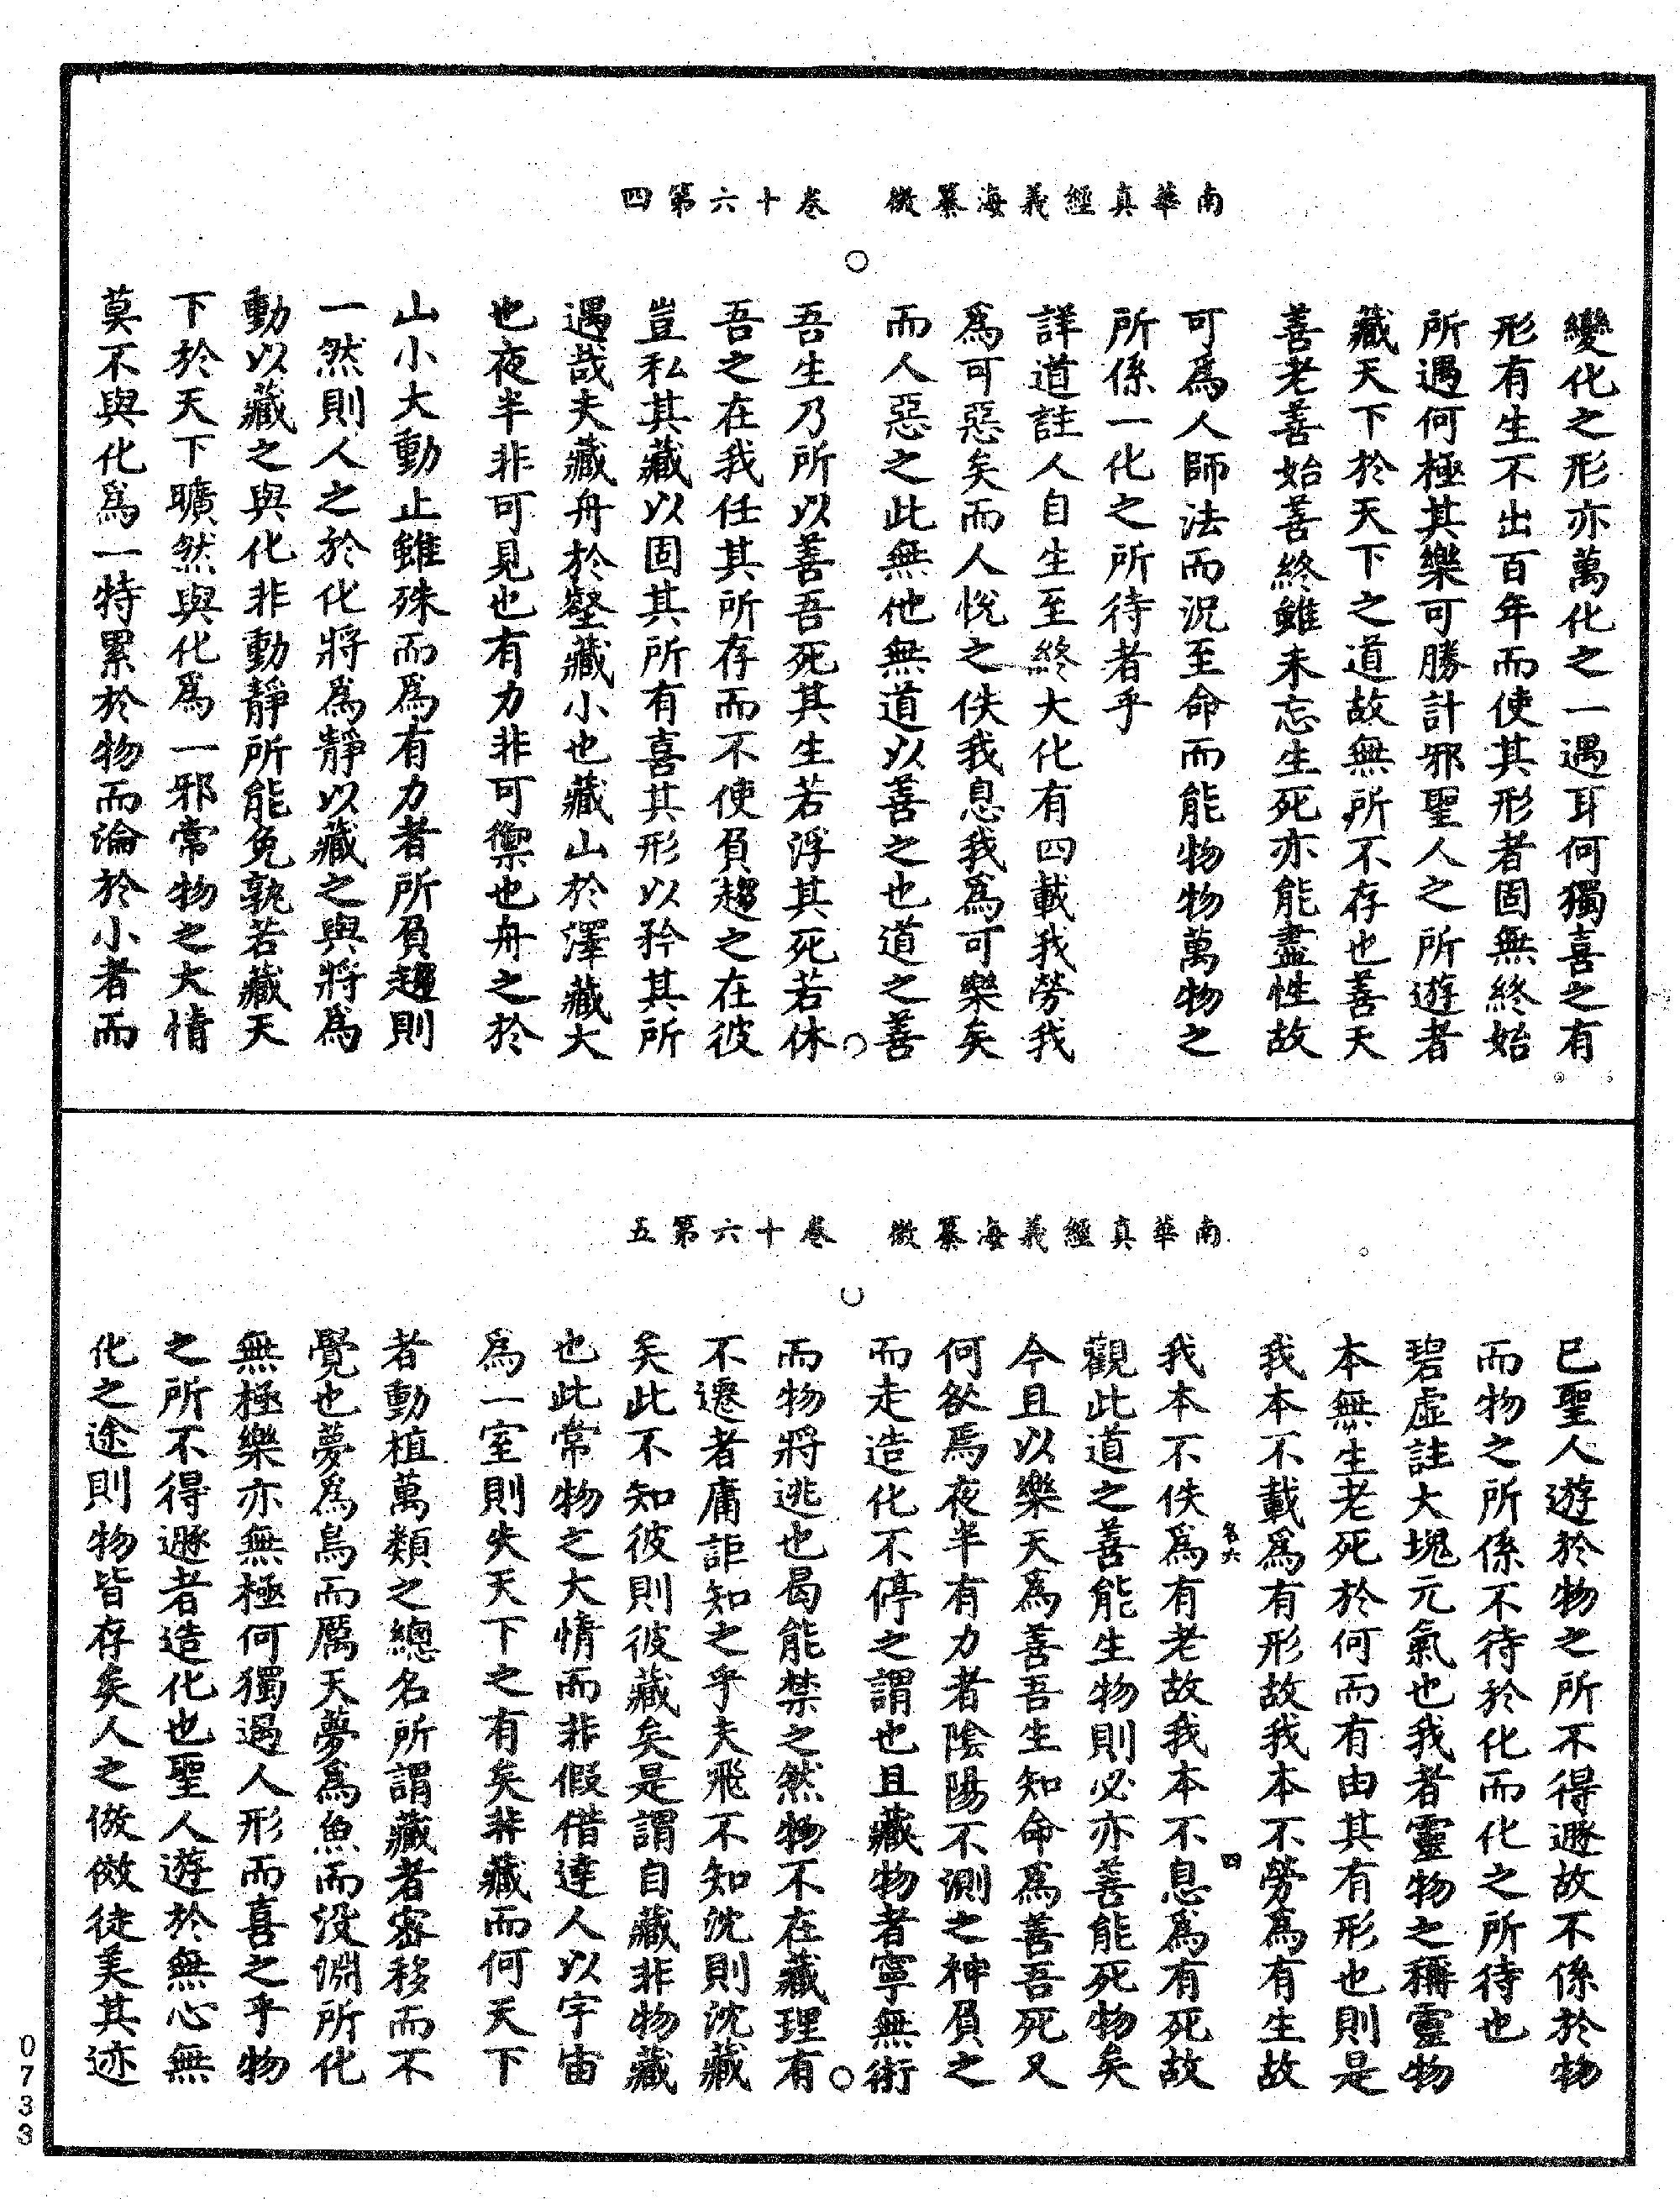 南華真經義海纂微　卷十六第四
變化之形亦萬化之一遇耳何獨喜之有
形有生不出百年而使其形者固無終始
所遇何極其樂可勝計邪聖人之所遊者
藏天下於天下之道故無所不存也善夭
善老善始善終雖未忘生死亦能盡性故
可為人師法而況至命而能物物萬物之
所係一化之所待者乎
詳道註人自生至終大化有四載我勞我
為可惡矣而人悅之佚我息我為可樂矣
而人惡之此無他無道以善之也道之善
吾生乃所以善吾死其生若浮其死若休
吾之在我任其所存而不使負趨之在彼
豈私其藏以固其所有喜其形以矜其所
遇哉夫藏舟於壑藏小也藏山於澤藏大
也夜半非可見也有力非可禦也舟之於
山小大動止雖殊而為有力者所負趨則
一然則人之於化將為靜以藏之與將為
動以藏之與化非動靜所能免孰若藏天
下於天下曠然與化為一邪常物之大情
莫不與化為一特累於物而淪於小者而
南華真經義海纂微　卷十六第五
已聖人遊於物之所不得遯故不係於物
而物之所係不待於化而化之所待也
碧虛註大塊元氣也我者靈物之稱靈物
本無生老死於何而有由其有形也則是
我本不載為有形故我本不勞為有生故
我本不佚為有老故我本不息為有死故
觀此道之善能生物則必亦善能死物矣
今且以樂天為善吾生知命為善吾死又
何欲焉夜半有力者陰陽不測之神負之
而走造化不停之謂也且藏物者寧無術
而物將逃也曷能禁之然物不在藏理有
不遷者庸詎知之乎夫飛不知沈則沈藏
矣此不知彼則彼藏矣是謂自藏非物藏
也此常物之大情而非假借達人以宇宙
為一室則失天下之有矣非藏而何天下
者動植萬類之總名所謂藏者密移而不
覺也夢為鳥而厲天夢為魚而沒淵所化
無極樂亦無極何獨遇人形而喜之乎物
之所不得遯者造化也聖人遊於無心無
化之途則物皆存矣人之倣傚徒美其迹
0733